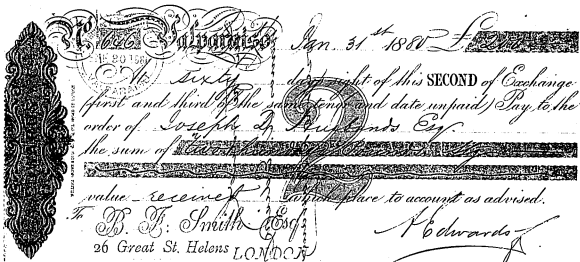 No. 646 Valparaiso Jan. 31st 1880 £
At sixty days sight of this SECOND of Exchange
(first and third of the same tenor and date unpaid) Pay to the
order of Joseph Esq.
the sum of
value received which place to account as advised.
To B. F. Smith Esq
26 Great St. Helens LONDON
A Edwards